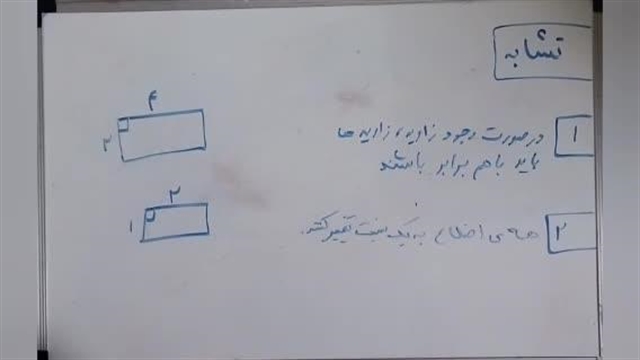 تشابه
۱ در صورت وجود زاویه، زاویه ها
باید باهم برابر باشند
۲ همه ی اضلاع به یک نسبت تغییر کنند.
۴
۲
۲
۱